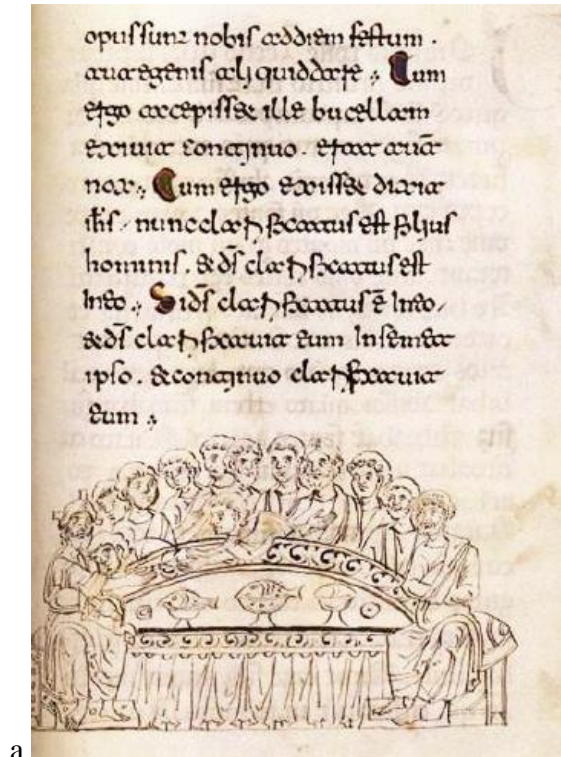 opus sunt nobis ad diem festum .
aut egenis aliquid daret . Cum
ergo accepisset ille bucellam
exiuit continuo . erat autē
nox . Cum ergo exisset dixit
ih̅s . nunc clarificatus est filius
hominis . & d̅s clarificatus est
In eo . Si d̅s clarificatus ē In eo .
& d̅s clarificauit eum In semet
ipso . & continuo clarificauit
eum .
a